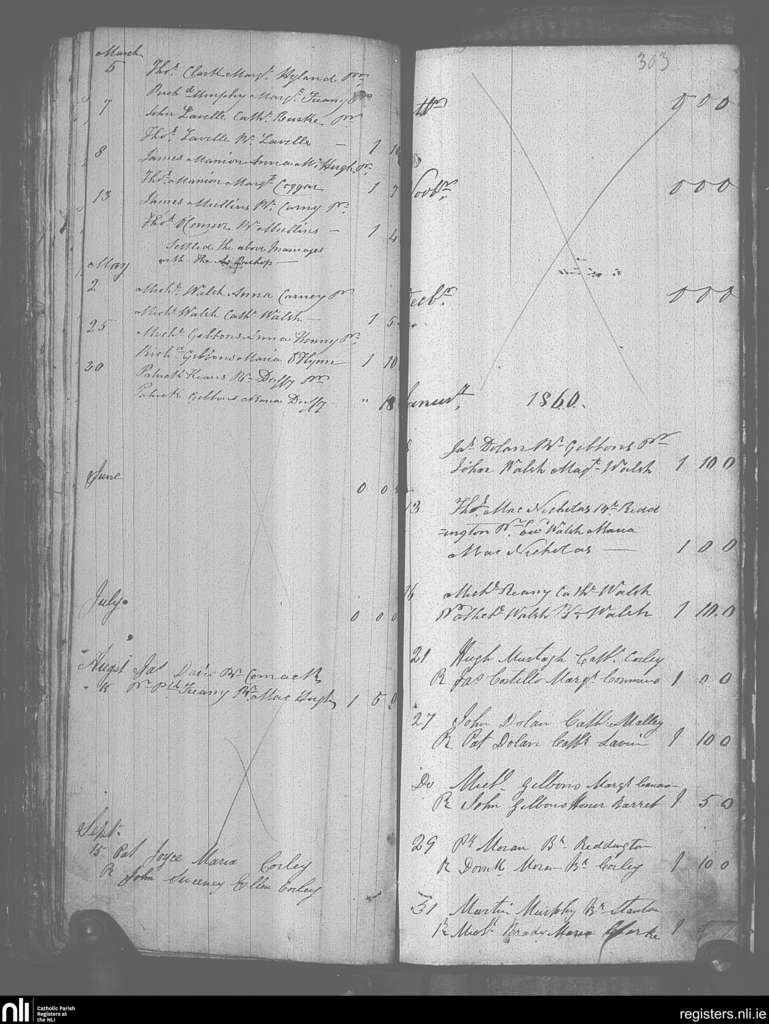 March
5 Thos. Clark Margt. Hyland Prs.
Richd. Murphy Margt. Treany
7 John Lavelle Cath. Rourke Pr.
Thos. Lavelle Wy. Lavelle — 1 10
8 James Manion Anna McHugh Pr.
Thos. Manion Margt. Coggon 1 7
13 James Mullins By. Carny Pr.
Thos. OConnor By. Mullins — 1 4
Settled the above Marriages
with the Bishop —
May
2 Michl. Walsh Anna Carney Pr
Michl. Walsh Cath. Walsh — 1 5
25 Michl. Gibbons Anna Henry Pr.
Richd. Gibbons Maria OFlynn 1 10
30 Patrick Keans By. Duffy Prs
Patrick Gibbons Maria Duffy " 18
June 0 0
July. 0 0 0
August Pat Davin By. Comack
" 18 Pr. Ptk Treany By. MacHugh 1 5
Sept.
15 Pat Joyce Maria Corley
R John Sweeney Ellen Corley
303
0 0 0
Novbr. 0 0 0
Decbr. 0 0 0
January 1860.
8 Jas. Dolan By. Gibbons Pr
John Walsh Magt. Walsh 1 10 0
13 Thos. Mac Nicholas By. Redd
ington Pr. Walsh Maria
Mac Nicholas — 1 0 0
16 Michl. Reany Cath. Walsh
Pr Michl. Walsh By. Walsh 1 10 0
21 Hugh Murtagh Cath. Corley
R Jas Costello Margt. 1 0 0
27 John Dolan Cath. Malley
R Pat Dolan Cath. Lavin 1 10 0
Do Michl. Gibbons Margt
R John Gibbons Honor Barret 1 5 0
29 Pk Moran By. Reddington
R Domk. Moran By. Corley 1 10 0
31 Martin Murphy By. Stanton
R Michl. Brady Maria Clarke 1
nli
Catholic Parish
Registers at
the NLI
registers.nli.ie